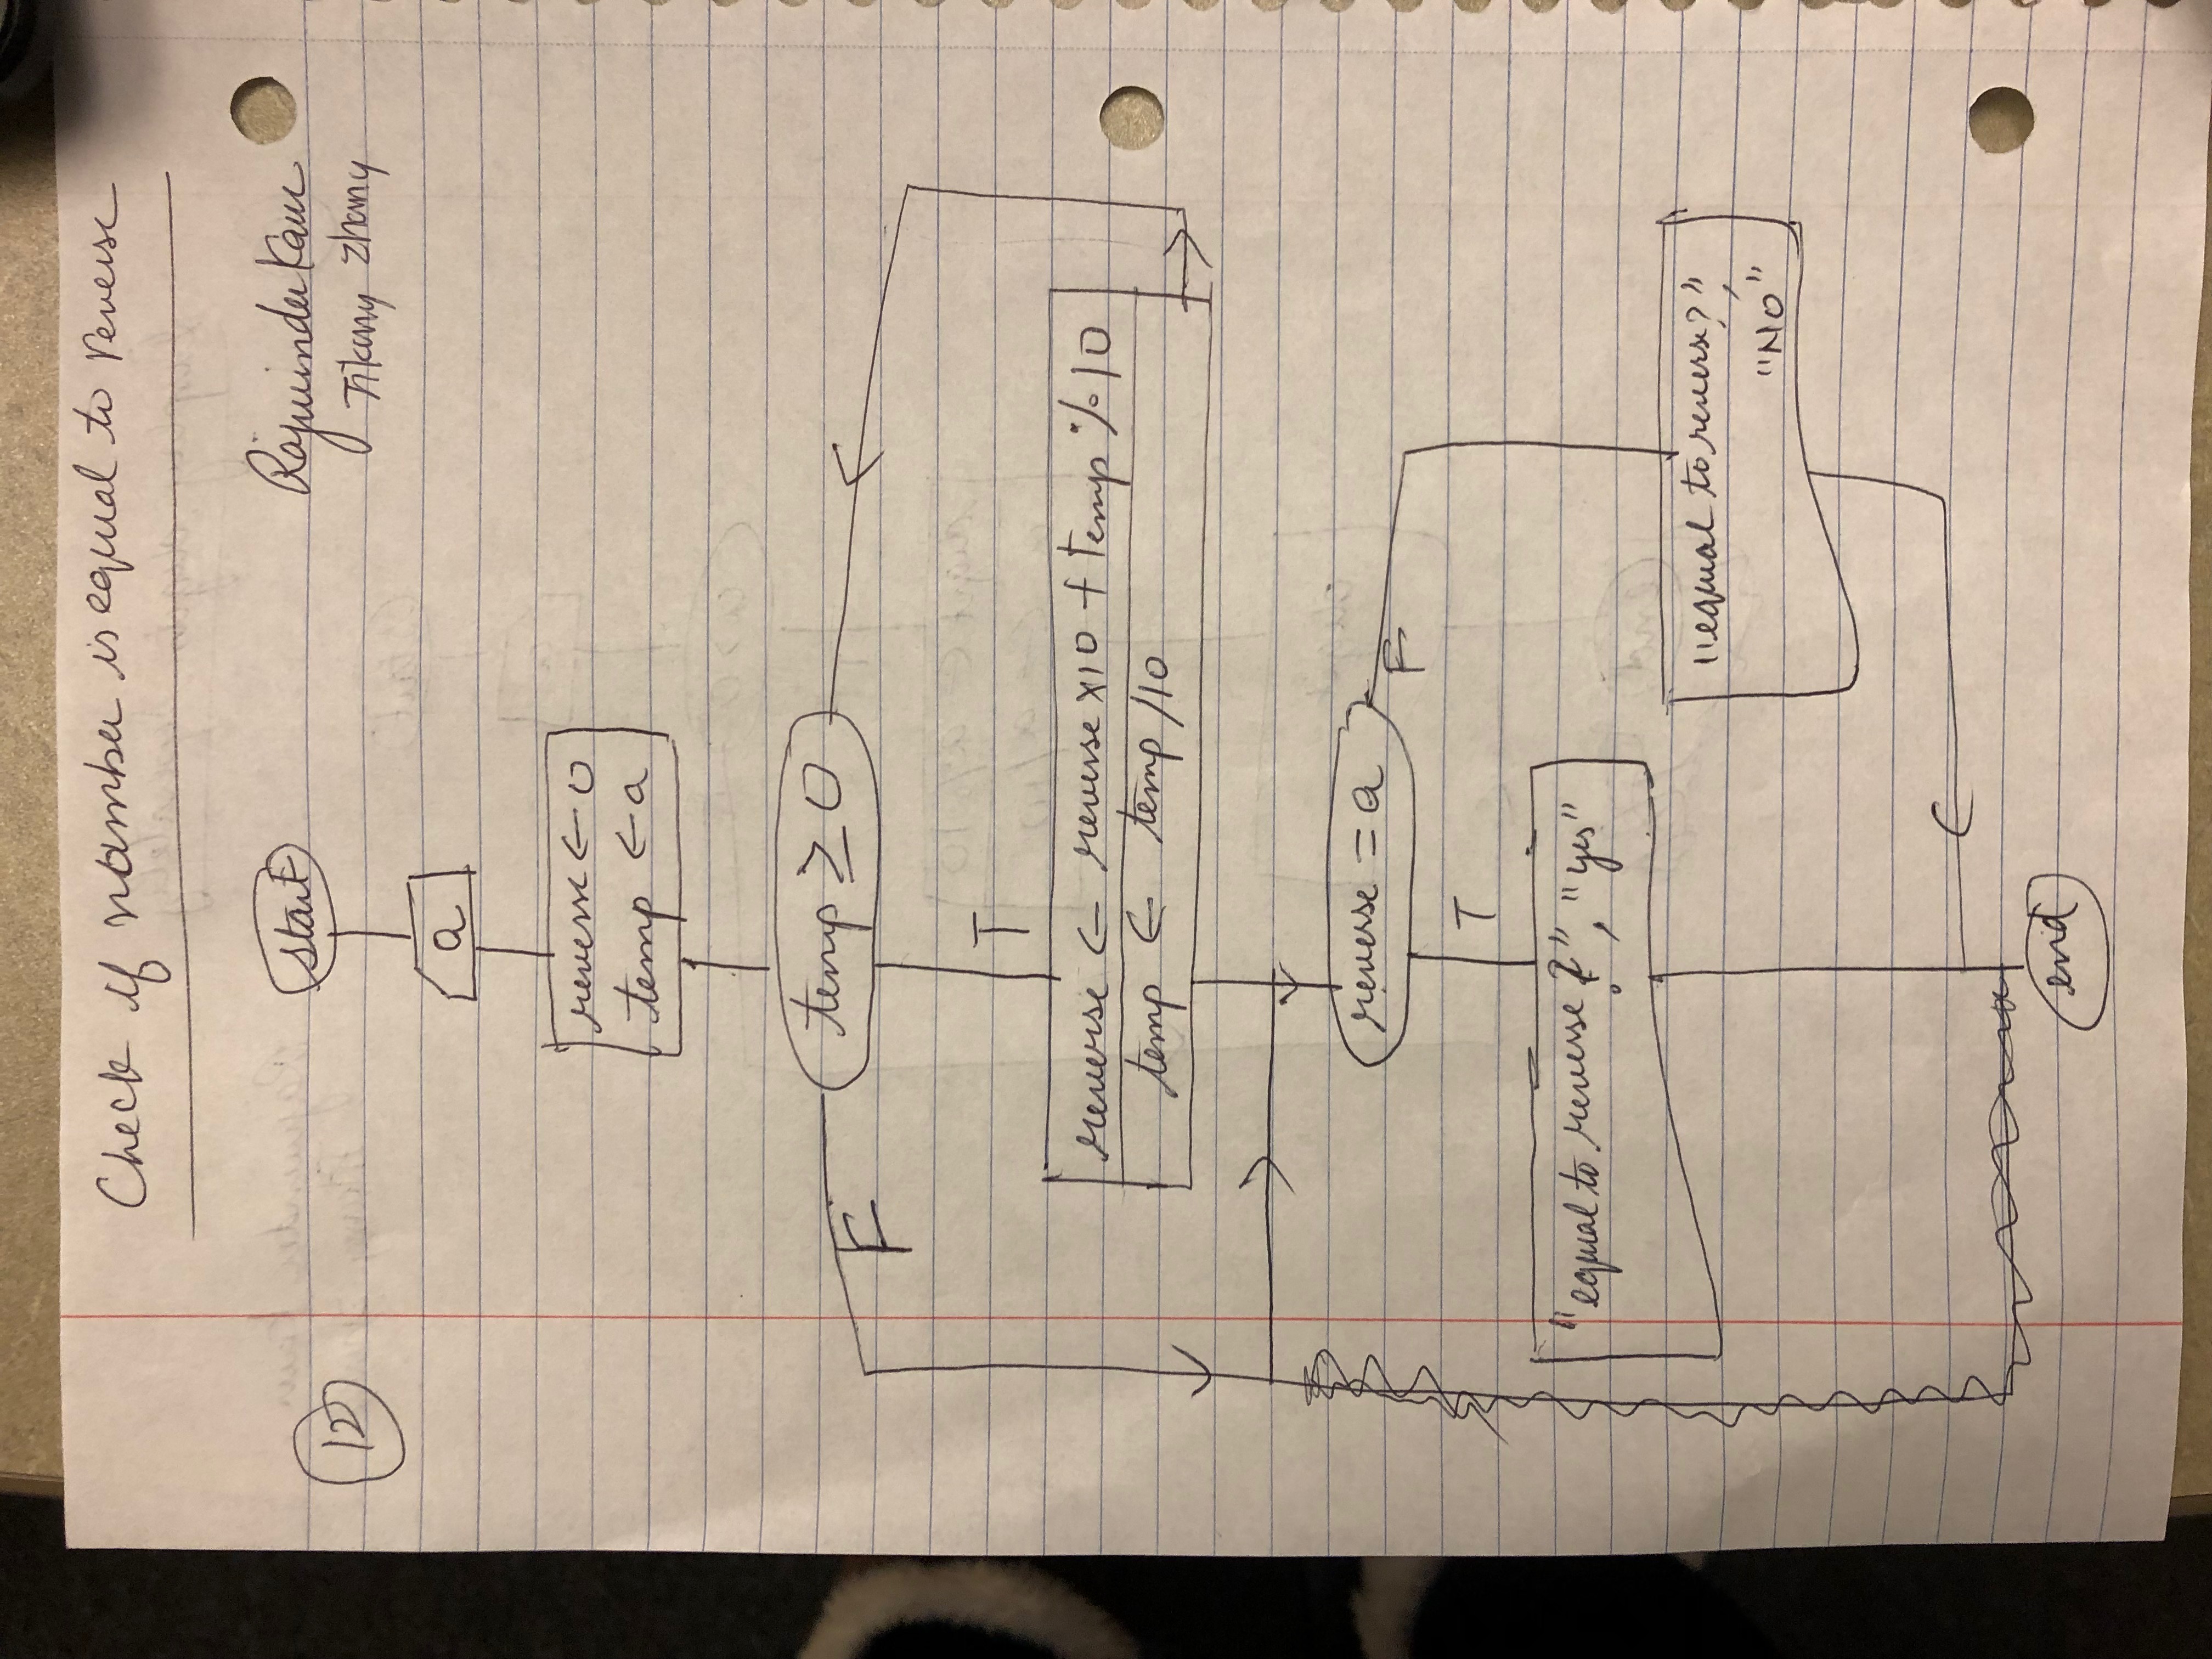 Check if number is equal to reverse
start
Rajwinder Kaur
12
Zhang
a
reverse ← 0
temp ← a
temp ≥ 0
F
T
reverse ← reverse x10 + temp % 10
temp ← temp /10
reverse = a
F
T
"equal to reverse ?", "yes"
"equal to reverse?",
"NO"
end